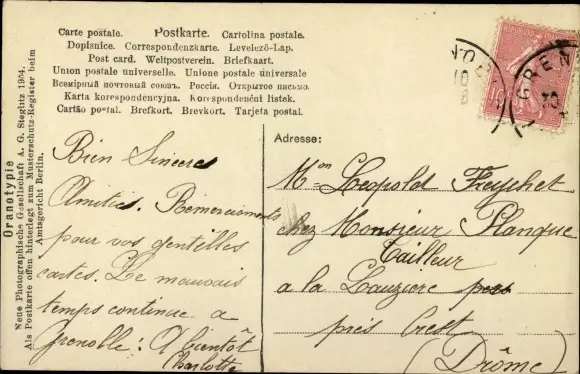 Carte postale. Postkarte. Cartolina postale.
Dopisnice. Correspondenzkarte. Levelező-Lap.
Post card. Weltpostverein. Briefkaart.
Union postale universelle. Unione postale universale
Всемірный почтовый союзъ. Россія. Открытое письмо.
Karta korespondencyjna. Korespondenční listek.
Cartão postal. Brefkort. Brevkort. Tarjeta postal.
Oranotypie
Neue Photographische Gesellschaft A. G. Steglitz 1904.
Als Postkarte offen hinterlegt zum Musterschutz-Register beim
Amtsgericht Berlin.
Bien Sincères
Amitiés. Remerciements
pour vos gentilles
cartes. Le mauvais
temps continue a
Grenoble: A bientôt
Charlotte
GREN
10
Adresse:
Mon Léopold Freychet
chez Monsieur Planque
Tailleur
a la Lauziere
près Crest
(Drôme)